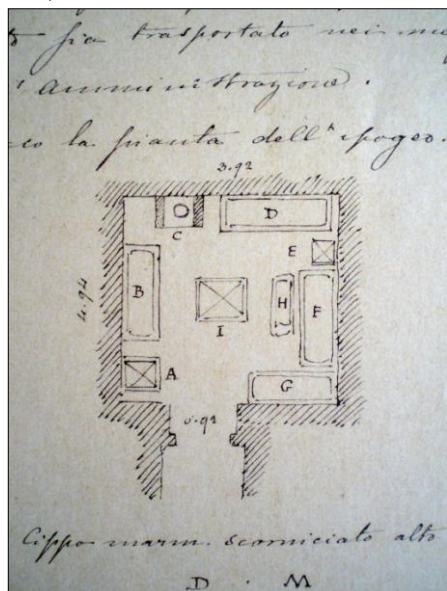 sia trasportato nei
amministrazione.
la pianta dell' ipogeo.
3.92
C D
E
4.94 B H F
I
A
G
0.92
Cippo marm. scorniciato alto
D . M